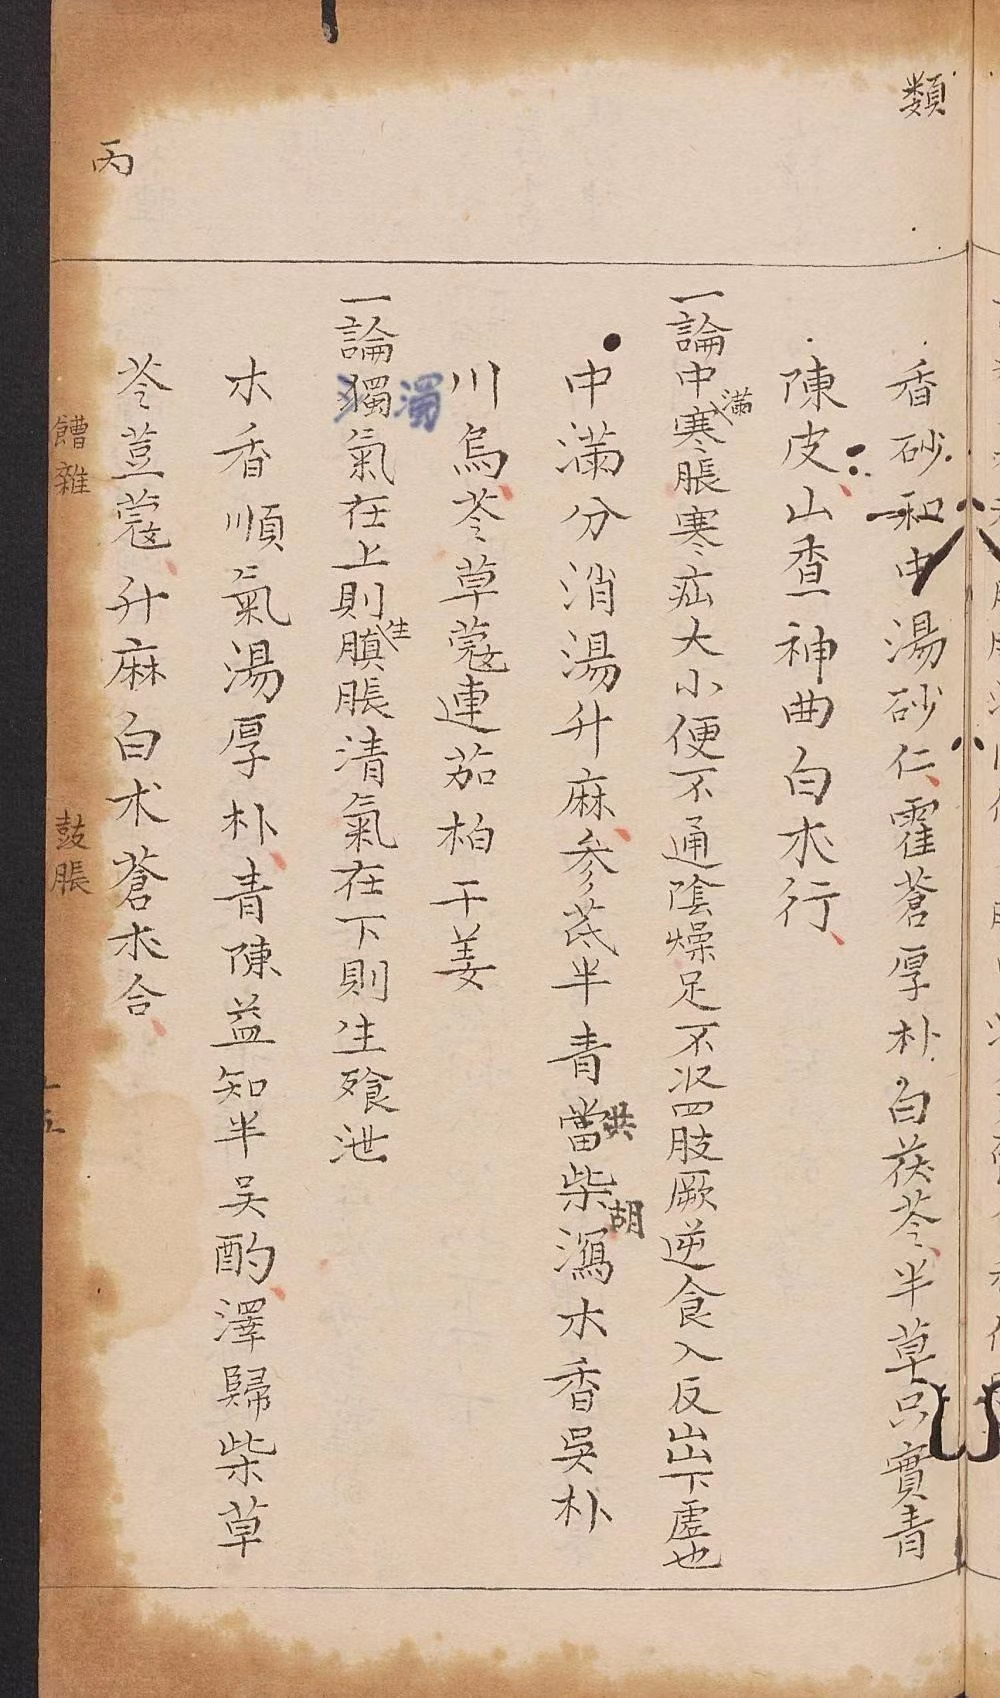 類
香砂和中湯砂仁霍蒼厚朴白茯苓半草只實青
陳皮山查神曲白朮行
一論中滿寒脹寒疝大小便不通陰燥足不收四肢厥逆食入反出下虛也
中滿分消湯升麻參芪半青當柴瀉木香吳朴
澔
胡
川烏苓草蔻連茄柏干姜
一論獨氣在上則生䐜脹清氣在下則生飱泄
濁
木香順氣湯厚朴青陳益知半吴酌澤歸柴草
苓荳蔻升麻白朮蒼朮合
丙
饋雜
鼓脹
十五